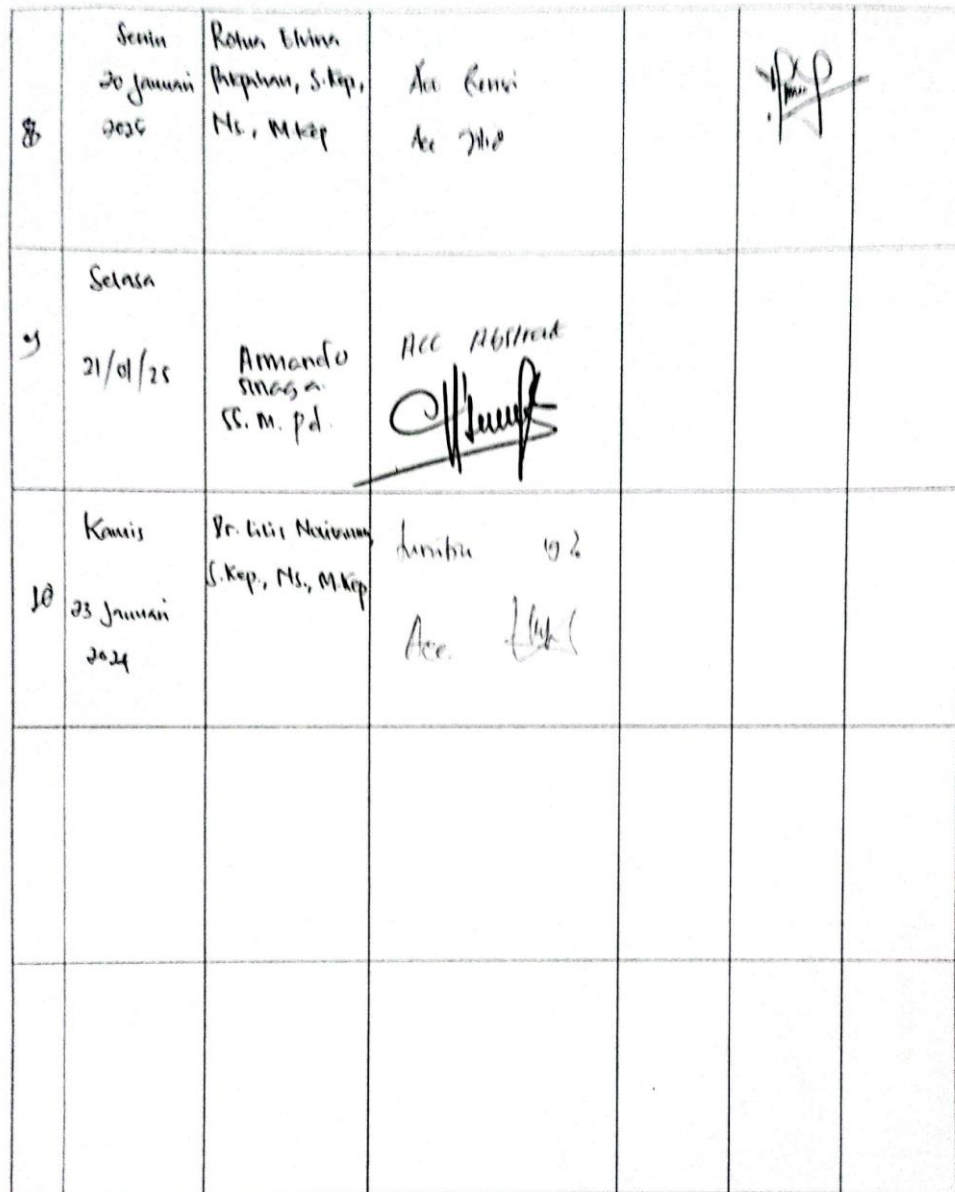 8
Senin
20 Januari
Rotua Elvina
Pakpahan, S.Kep,
Ns., M.Kep
Acc
Acc Jilid
9
Selasa
21/01/25
Armando
Sinaga
SS. M. Pd.
ACC Abstrak
10
Kamis
23 Januari
Dr. Lilis Novitarum,
S.Kep., Ns., M.Kep
Acc